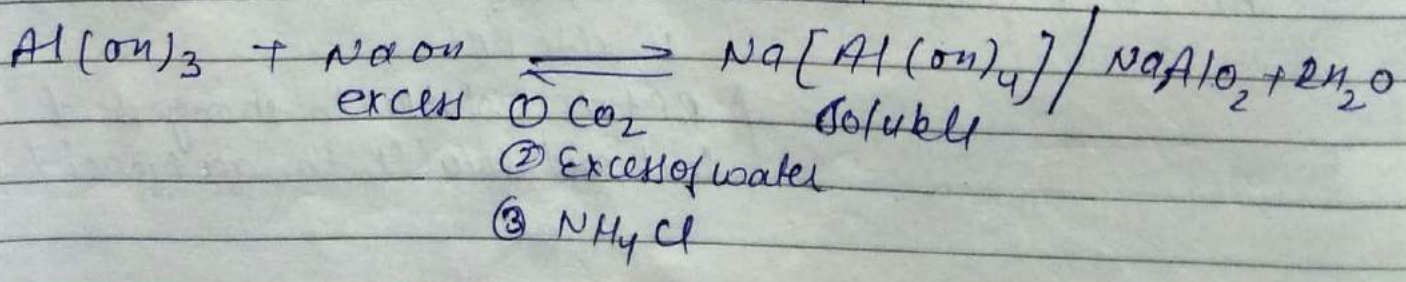 Al(OH)3 + NaOH ⇌ Na[Al(OH)4] / NaAlO2 + 2H2O
excess ① CO2 soluble
② Excess of water
③ NH4Cl